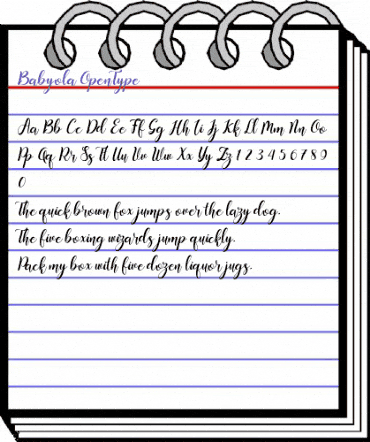 Babyola OpenType
Aa Bb Cc Dd Ee Ff Gg Hh Ii Jj Kk Ll Mm Nn Oo
Pp Qq Rr Ss Tt Uu Vv Ww Xx Yy Zz 1 2 3 4 5 6 7 8 9
0
The quick brown fox jumps over the lazy dog.
The five boxing wizards jump quickly.
Pack my box with five dozen liquor jugs.